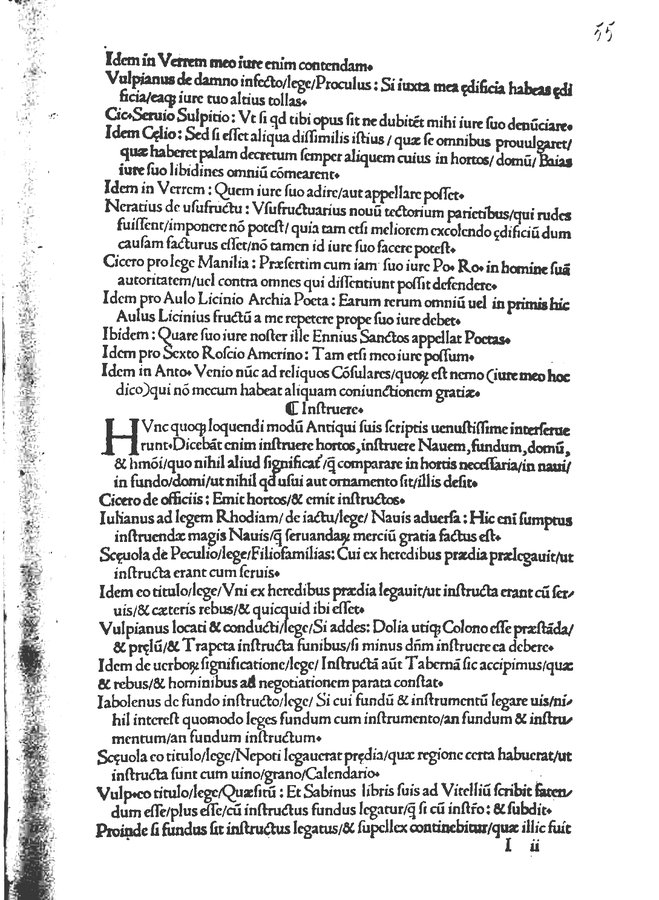 55
Idem in Verrem meo iure enim contendam.
Vulpianus de damno infecto/lege/Proculus: Si iuxta mea ędificia habeas ędi
ficia/eaqꝫ iure tuo altius tollas.
Cic. Seruio Sulpitio: Vt si qd tibi opus sit ne dubitēt mihi iure suo denūciare.
Idem Cęlio: Sed si esset aliqua dissimilis istius / quæ se omnibus prouulgaret/
quæ haberet palam decretum semper aliquem cuius in hortos/domū/Baias
iure suo libidines omniū cōmearent.
Idem in Verrem: Quem iure suo adire/aut appellare posset.
Neratius de usufructu: Vsufructuarius nouū tectorium parietibus/qui rudes
fuissent/imponere nō potest/ quia tam etsi meliorem excolendo ędificiū dum
causam facturus esset/nō tamen id iure suo facere potest.
Cicero pro lege Manilia: Præsertim cum iam suo iure Po. Ro. in homine suā
autoritatem/uel contra omnes qui dissentiunt possit defendere.
Idem pro Aulo Licinio Archia Poeta: Earum rerum omniū uel in primis hic
Aulus Licinius fructū a me repetere prope suo iure debet.
Ibidem: Quare suo iure noster ille Ennius Sanctos appellat Poetas.
Idem pro Sexto Roscio Amerino: Tam etsi meo iure possum.
Idem in Anto. Venio nūc ad reliquos Cōsulares/quoꝝ est nemo (iure meo hoc
dico) qui nō mecum habeat aliquam coniunctionem gratiæ.
¶ Instruere.
HVnc quoqꝫ loquendi modū Antiqui suis scriptis uenustissime interserue
runt. Dicebāt enim instruere hortos, instruere Nauem, fundum, domū,
& hmōi/quo nihil aliud significat᷑/q̄ comparare in hortis necessaria/in naui/
in fundo/domi/ut nihil qd usui aut ornamento sit/illis desit.
Cicero de officiis: Emit hortos/& emit instructos.
Iulianus ad legem Rhodiam/de iactu/lege/ Nauis aduersa: Hic eni sumptus
instruendæ magis Nauis/q̄ seruandaꝝ merciū gratia factus est.
Scęuola de Peculio/lege/Filiofamilias: Cui ex heredibus prædia prælegauit/ut
instructa erant cum seruis.
Idem eo titulo/lege/Vni ex heredibus prædia legauit/ut instructa erant cū ser/
uis/& cæteris rebus/& quicquid ibi esset.
Vulpianus locati & conducti/lege/Si addes: Dolia utiqꝫ Colono esse præstāda/
& pręlū/& Trapeta instructa funibus/si minus dn̄m instruere ea debere.
Idem de uerboꝝ significatione/lege/ Instructā aūt Tabernā sic accipimus/quæ
& rebus/& hominibus ad negotiationem parata constat.
Iabolenus de fundo instructo/lege/ Si cui fundū & instrumentū legare uis/ni/
hil interest quomodo leges fundum cum instrumento/an fundum & instru/
mentum/an fundum instructum.
Scęuola eo titulo/lege/Nepoti legauerat prędia/quæ regione certa habuerat/ut
instructa sunt cum uino/grano/Calendario.
Vulp. eo titulo/lege/Quæsitū: Et Sabinus libris suis ad Vitelliū scribit faten/
dum esse/plus esse/cū instructus fundus legatur/q̄ si cū instr̄o: & subdit.
Proinde si fundus sit instructus legatus/& supellex continebitur/quæ illic fuit
I ii